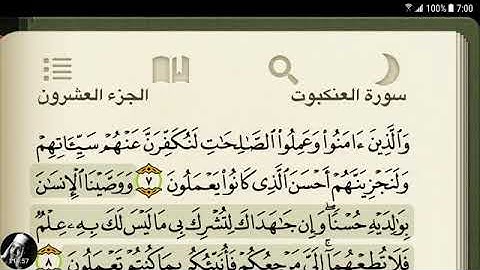 100% 7:00
سورة العنكبوت الجزء العشرون
وَٱلَّذِينَ ءَامَنُوا۟ وَعَمِلُوا۟ ٱلصَّٰلِحَٰتِ لَنُكَفِّرَنَّ عَنْهُمْ سَيِّـَٔاتِهِمْ
وَلَنَجْزِيَنَّهُمْ أَحْسَنَ ٱلَّذِى كَانُوا۟ يَعْمَلُونَ ٧ وَوَصَّيْنَا ٱلْإِنسَٰنَ
بِوَٰلِدَيْهِ حُسْنًا ۖ وَإِن جَٰهَدَاكَ لِتُشْرِكَ بِى مَا لَيْسَ لَكَ بِهِۦ عِلْمٌ
فَلَا تُطِعْهُمَآ ۚ إِلَىَّ مَرْجِعُكُمْ فَأُنَبِّئُكُم بِمَا كُنتُمْ تَعْمَلُونَ ٨